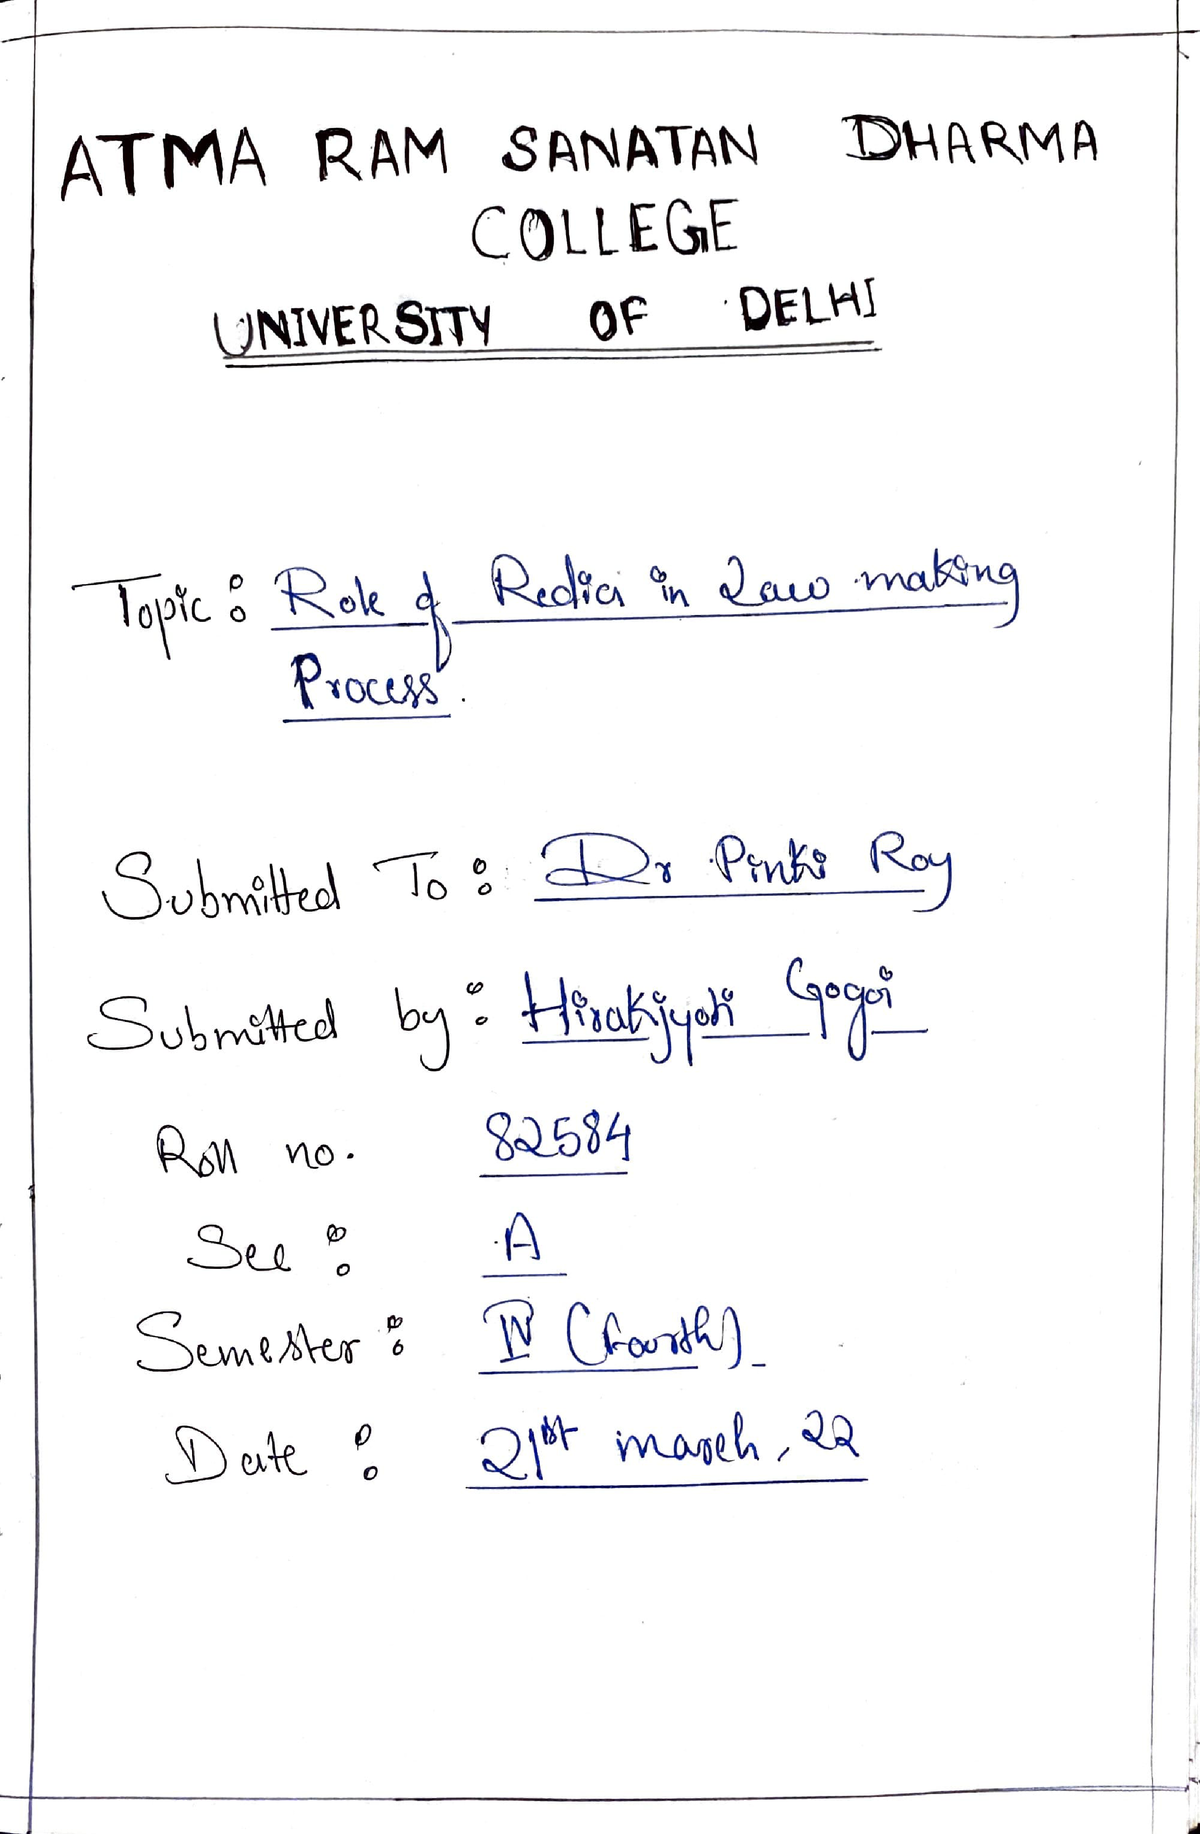 ATMA RAM SANATAN DHARMA
COLLEGE
UNIVERSITY OF DELHI
Topic: Role of Redia in Law making
Process.
Submitted To: Dr Pinki Roy
Submitted by: Hirakjyoti Gogoi
Roll no. 82584
Sec: A
Semester: IV (fourth)
Date: 21st march, 22